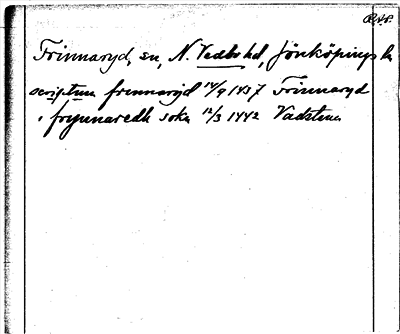 Frinnaryd, sn, N. Vedbo hd, Jönköpings ln
scriptum frinnaryd 14/9 1437 Frinnaryd
i frynnaredh sokn 12/3 1442 Vadstena